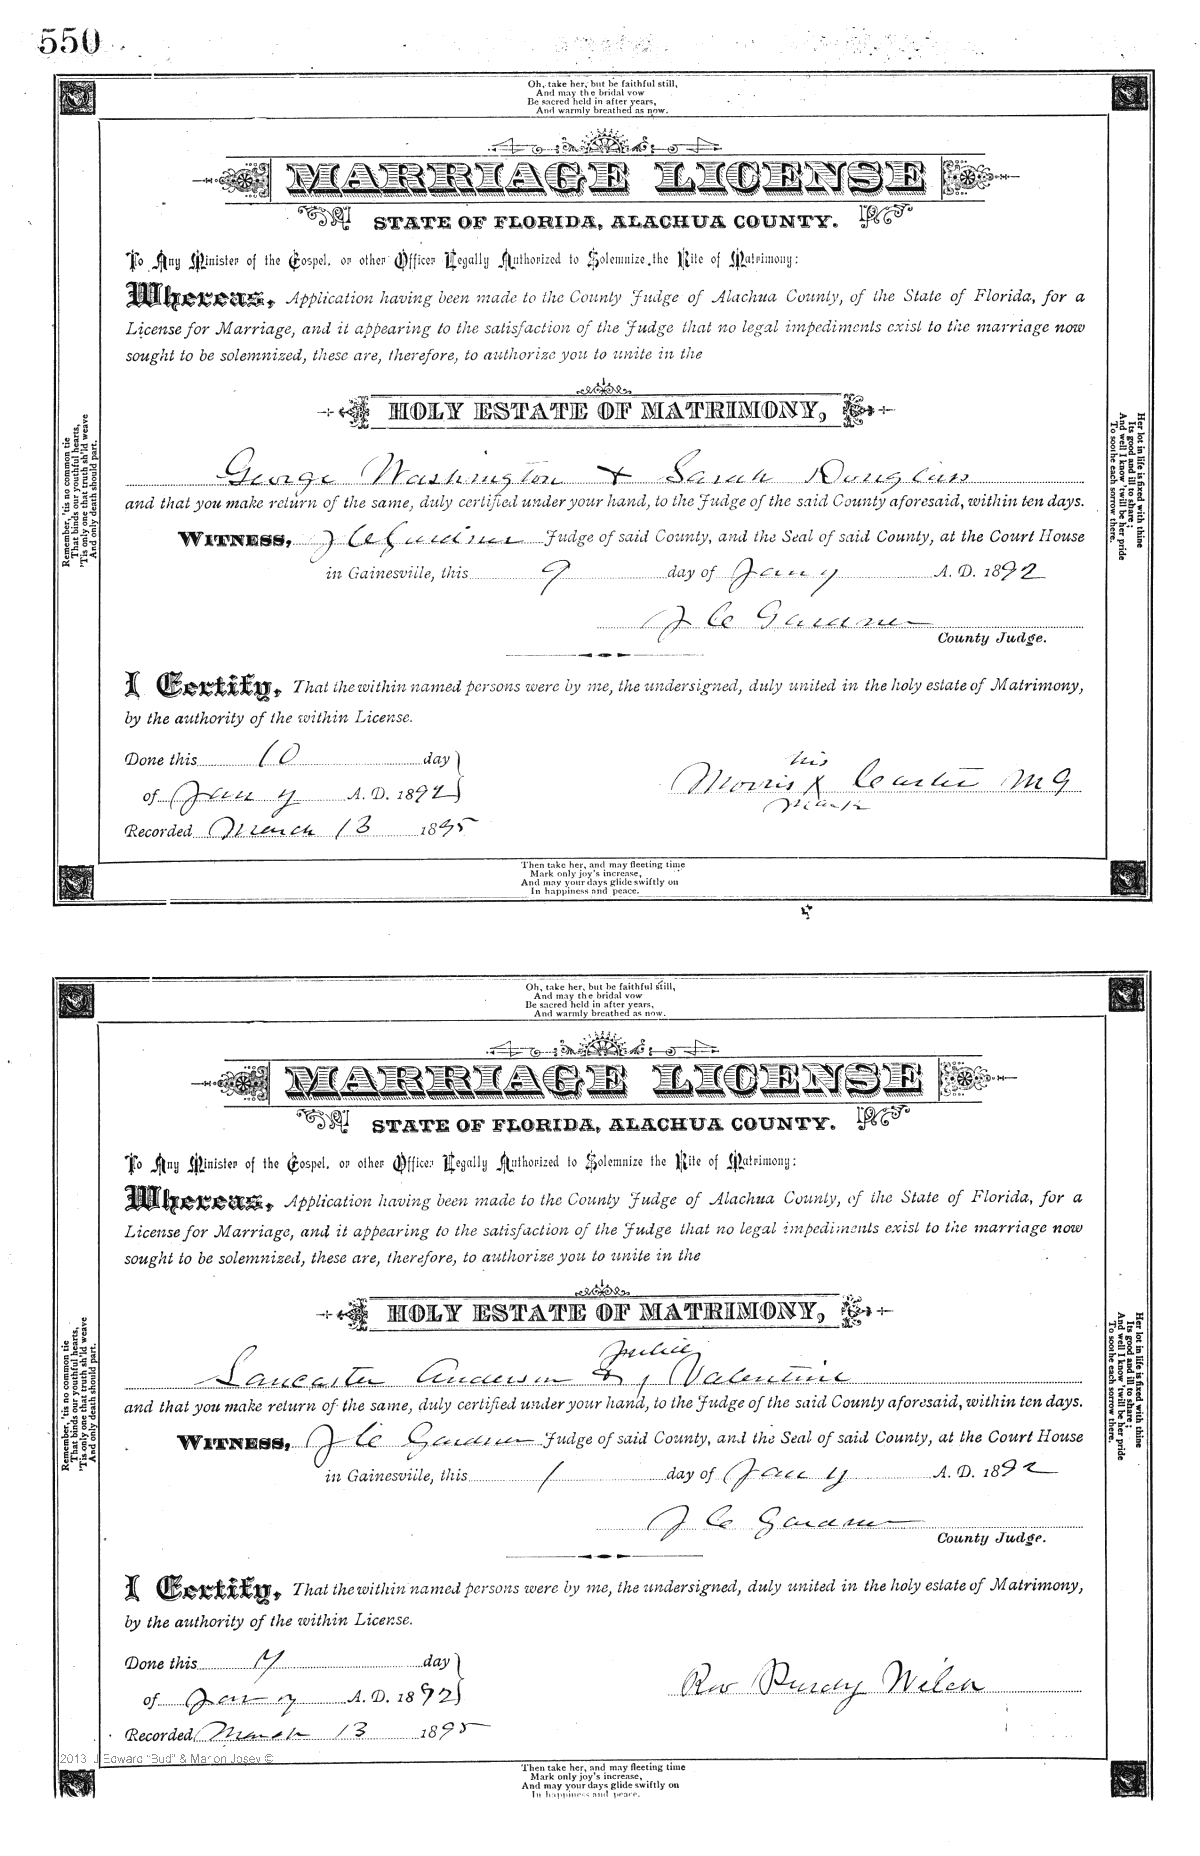 550
Oh, take her, but be faithful still,
And may the bridal vow
Be sacred held in after years,
And warmly breathed as now.
MARRIAGE LICENSE
STATE OF FLORIDA, ALACHUA COUNTY.
To Any Minister of the Gospel, or other Officer Legally Authorized to Solemnize the Rite of Matrimony:
Whereas, Application having been made to the County Judge of Alachua County, of the State of Florida, for a
License for Marriage, and it appearing to the satisfaction of the Judge that no legal impediments exist to the marriage now
sought to be solemnized, these are, therefore, to authorize you to unite in the
HOLY ESTATE OF MATRIMONY,
George Washington & Sarah Douglass
and that you make return of the same, duly certified under your hand, to the Judge of the said County aforesaid, within ten days.
WITNESS, J C Gardner Judge of said County, and the Seal of said County, at the Court House
in Gainesville, this 9 day of Jany A. D. 1892
J C Gardner
County Judge.
I Certify, That the within named persons were by me, the undersigned, duly united in the holy estate of Matrimony,
by the authority of the within License.
Done this 10 day
of Jany A. D. 1892
his
Morris X Carter M G
mark
Recorded March 13 1895
Remember, 'tis no common tie
That binds our youthful hearts,
'Tis only one that truth sh'ld weave
And only death should part.
Her lot in life is fixed with thine
Its good and ill to share;
And well I know 'twill be her pride
To soothe each sorrow there.
Then take her, and may fleeting time
Mark only joy's increase,
And may your days glide swiftly on
In happiness and peace.
Oh, take her, but be faithful still,
And may the bridal vow
Be sacred held in after years,
And warmly breathed as now.
MARRIAGE LICENSE
STATE OF FLORIDA, ALACHUA COUNTY.
To Any Minister of the Gospel, or other Officer Legally Authorized to Solemnize the Rite of Matrimony:
Whereas, Application having been made to the County Judge of Alachua County, of the State of Florida, for a
License for Marriage, and it appearing to the satisfaction of the Judge that no legal impediments exist to the marriage now
sought to be solemnized, these are, therefore, to authorize you to unite in the
HOLY ESTATE OF MATRIMONY,
Lancaster Anderson & Valentine
and that you make return of the same, duly certified under your hand, to the Judge of the said County aforesaid, within ten days.
WITNESS, J C Gardner Judge of said County, and the Seal of said County, at the Court House
in Gainesville, this 1 day of Jany A. D. 1892
J C Gardner
County Judge.
I Certify, That the within named persons were by me, the undersigned, duly united in the holy estate of Matrimony,
by the authority of the within License.
Done this 7 day
of Jany A. D. 1892
Rev Purdy
Recorded March 13 1895
Remember, 'tis no common tie
That binds our youthful hearts,
'Tis only one that truth sh'ld weave
And only death should part.
Her lot in life is fixed with thine
Its good and ill to share;
And well I know 'twill be her pride
To soothe each sorrow there.
2013 J Edward "Bud" & Marion Josey ©
Then take her, and may fleeting time
Mark only joy's increase,
And may your days glide swiftly on
In happiness and peace.